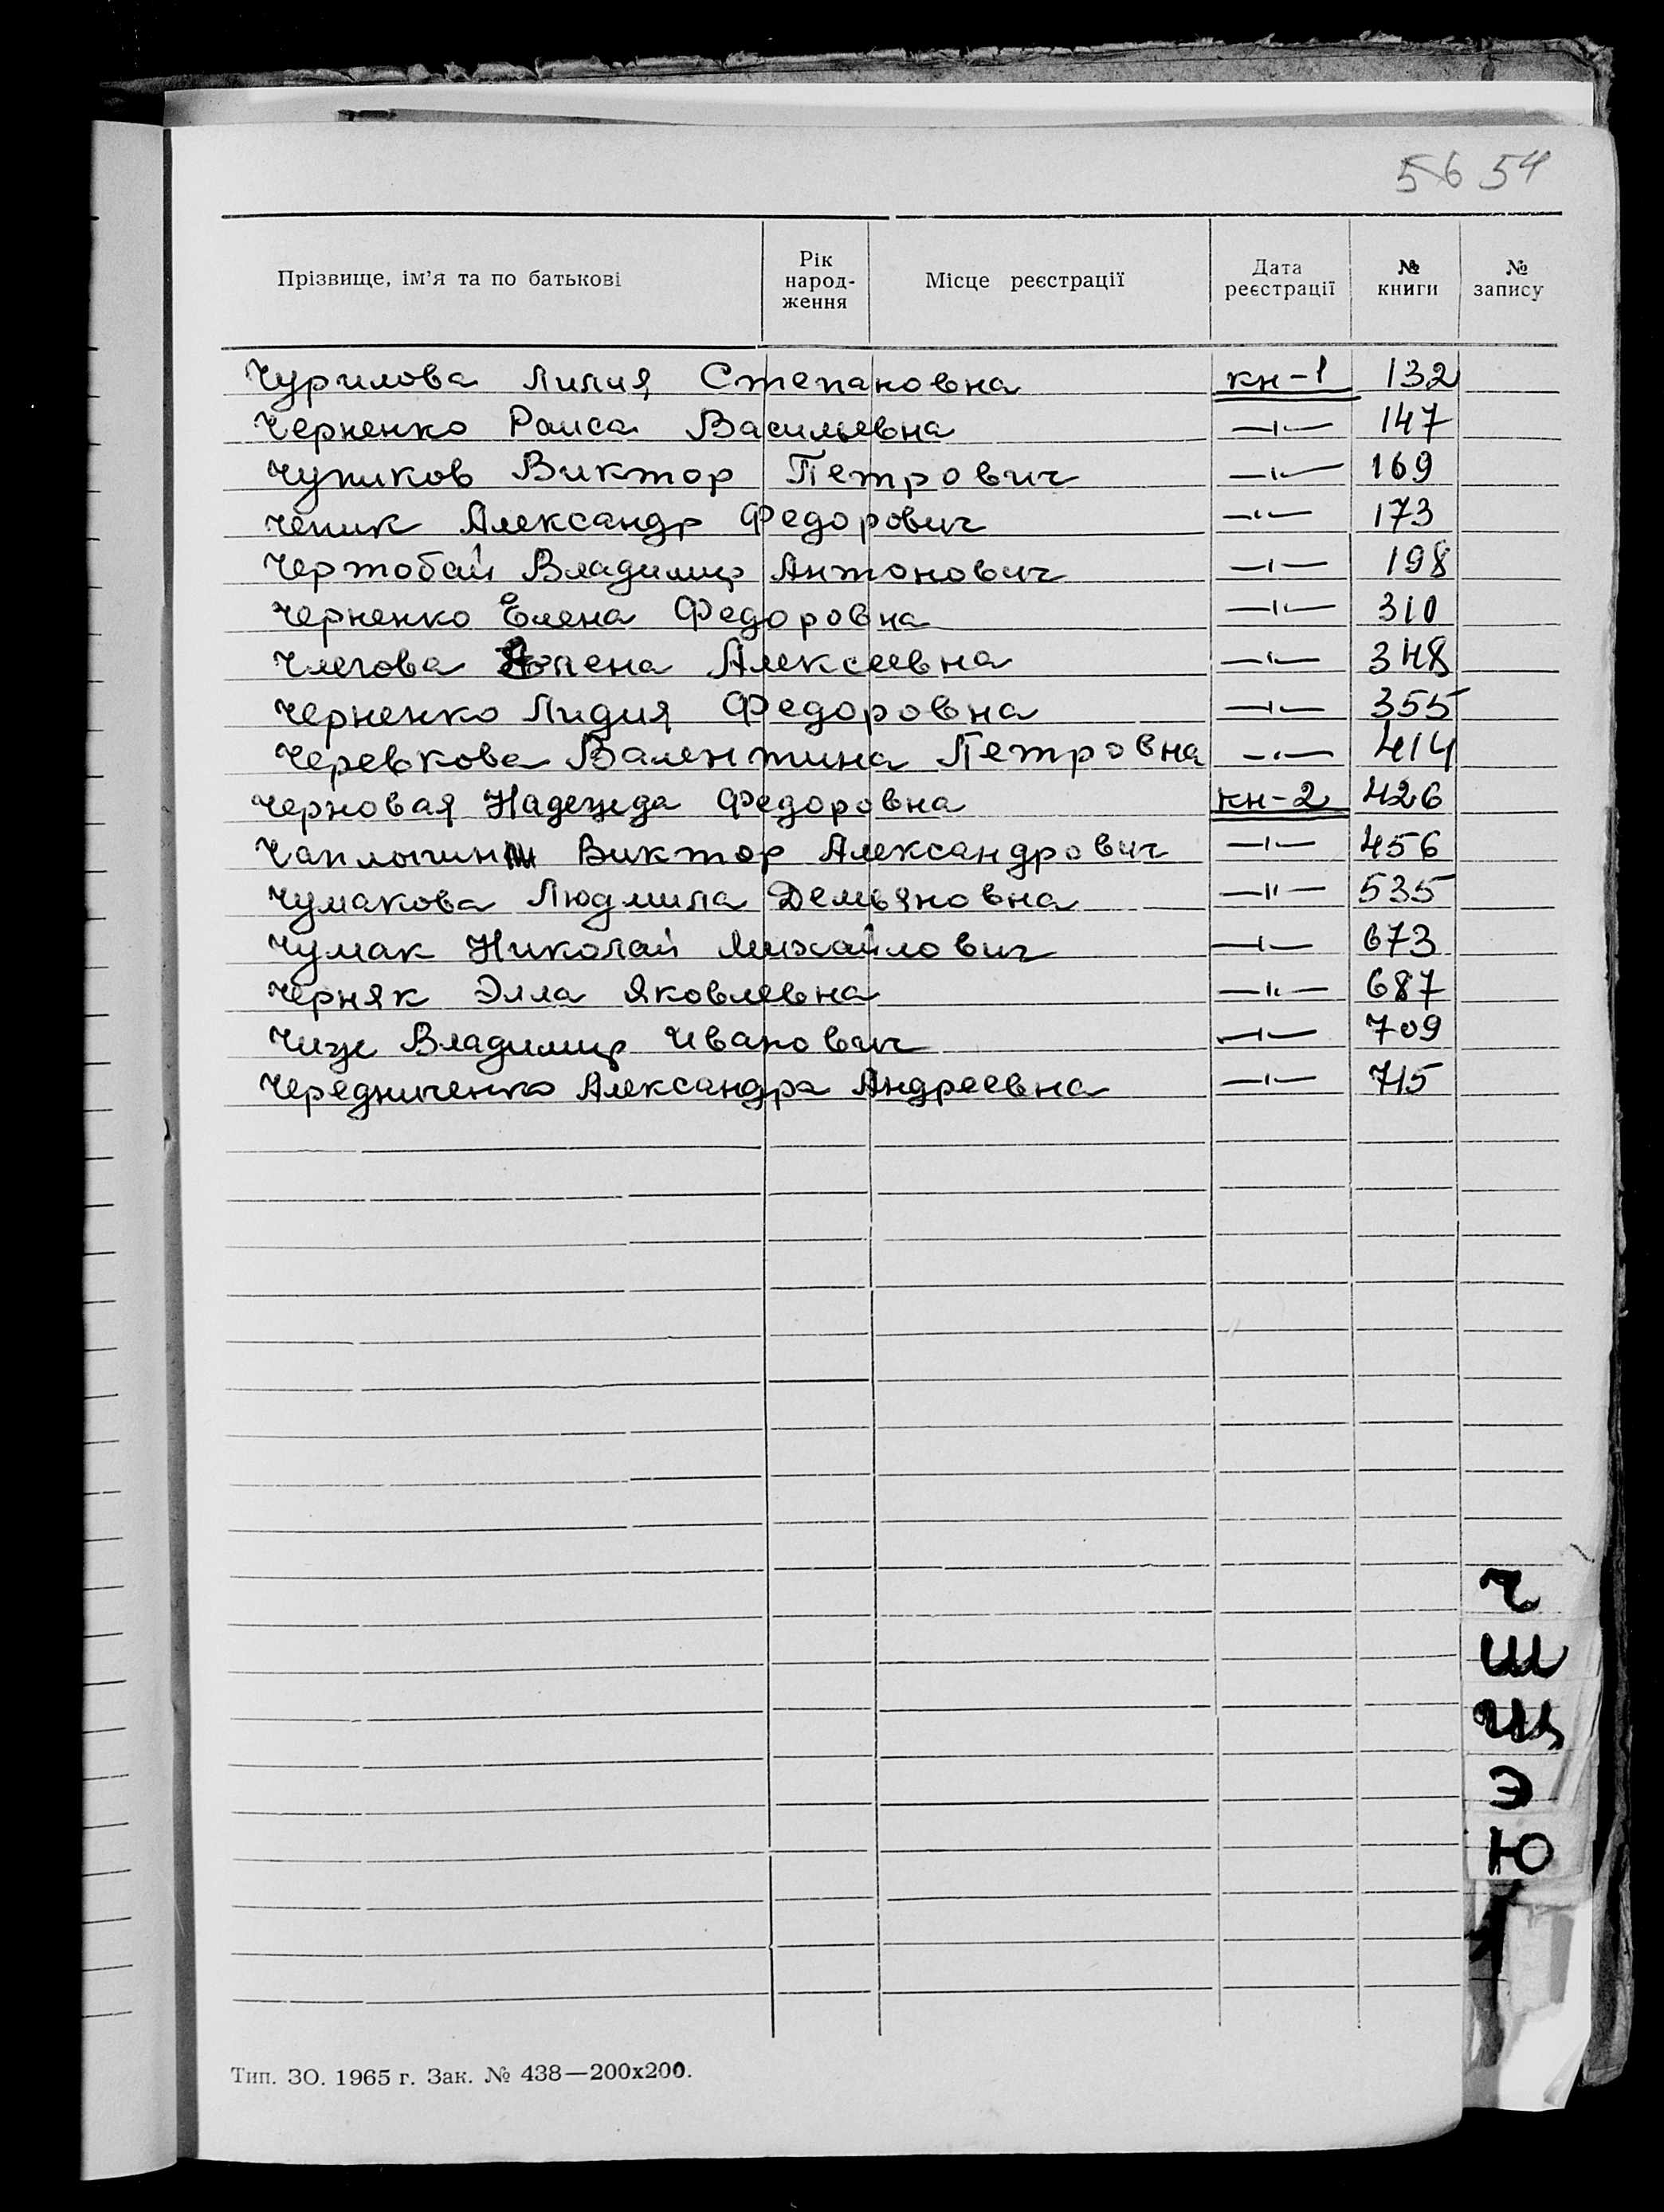 56 54
Прізвище, ім'я та по батькові Рік народ-ження Місце реєстрації Дата реєстрації № книги № запису
Чурилова Лилия Степановна кн-1 132
Черненко Раиса Васильевна —"— 147
Чупиков Виктор Петрович —"— 169
Чепик Александр Федорович —"— 173
Чертобай Владимир Антонович —"— 198
Черненко Елена Федоровна —"— 310
Алексеевна —"— 348
Черненко Лидия Федоровна —"— 355
Черевкова Валентина Петровна —"— 414
Черновая Надежда Федоровна кн-2 426
Виктор Александрович —"— 456
Чумакова Людмила Демьяновна —"— 535
Чумак Николай Михайлович —"— 673
Черняк Элла Яковлевна —"— 687
Чиж Владимир Иванович —"— 709
Чередниченко Александра Андреевна —"— 715
Ч
Ш
Щ
Э
Ю
Тип. ЗО. 1965 г. Зак. № 438—200х200.